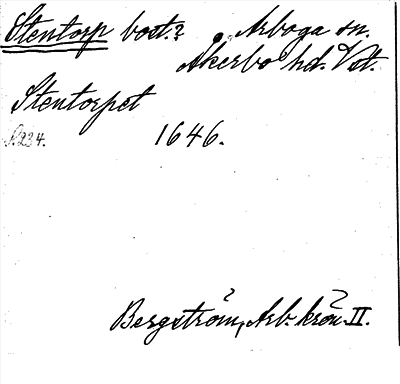 Stentorp bost.? Arboga sn.
Åkerbo hd. Vst.
Stentorpet
S. 234. 1646.
Bergström, Arb. krön. II.